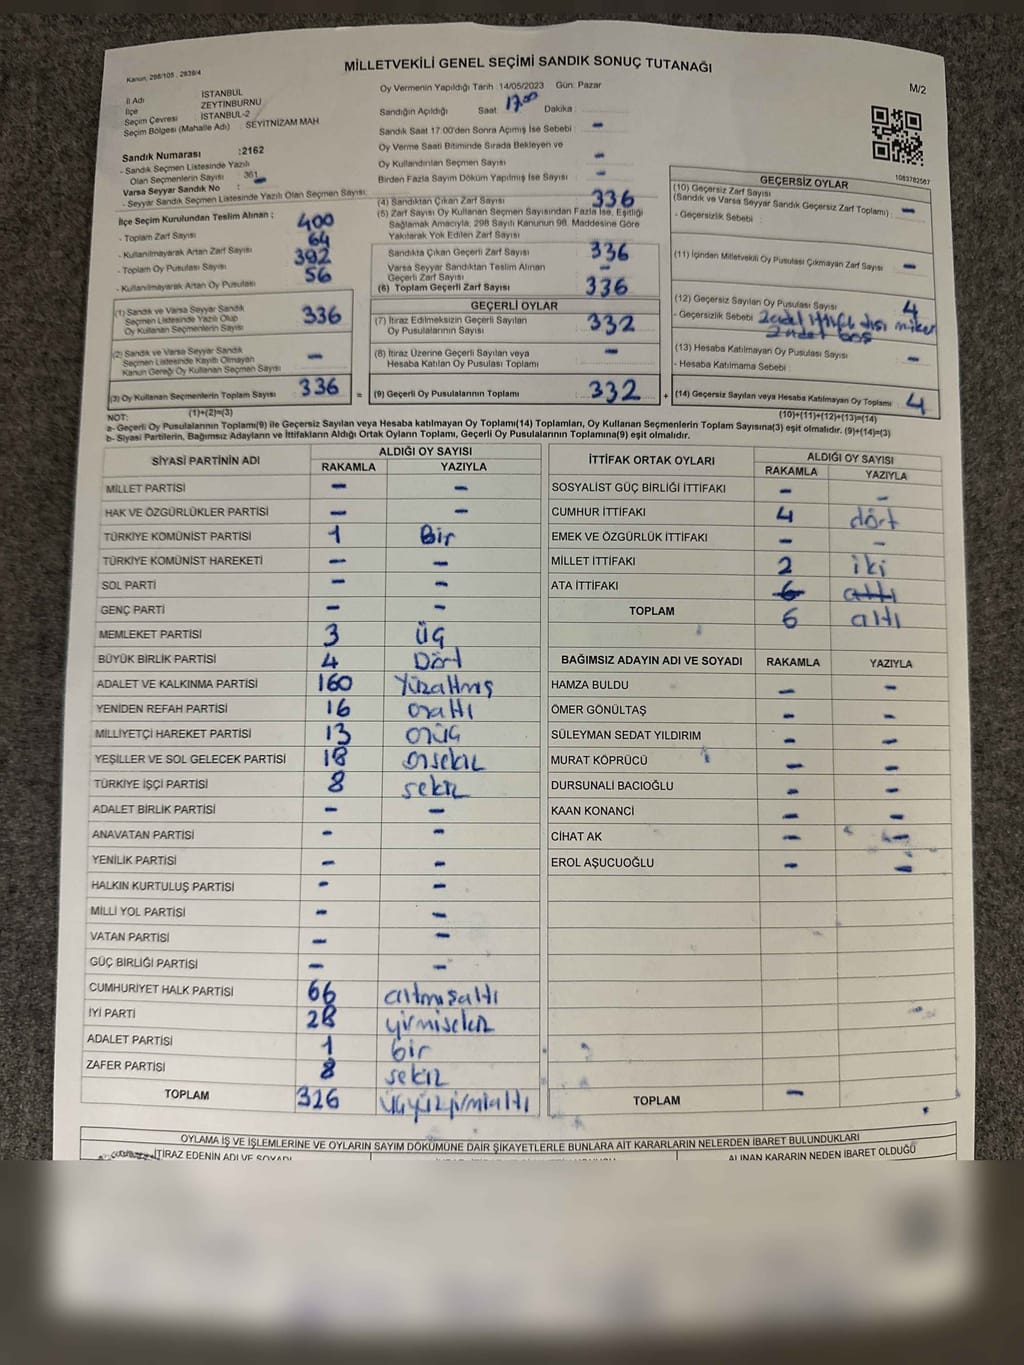 MİLLETVEKİLİ GENEL SEÇİMİ SANDIK SONUÇ TUTANAĞI
Kanun, 298/105 , 2839/4
M/2
İl Adı İSTANBUL
İlçe ZEYTİNBURNU
Seçim Çevresi : İSTANBUL-2
Seçim Bölgesi (Mahalle Adı) : SEYİTNİZAM MAH
Sandık Numarası :2162
- Sandık Seçmen Listesinde Yazılı
Olan Seçmenlerin Sayısı 361
Varsa Seyyar Sandık No : -
- Seyyar Sandık Seçmen Listesinde Yazılı Olan Seçmen Sayısı:
İlçe Seçim Kurulundan Teslim Alınan ;
- Toplam Zarf Sayısı 400
- Kullanılmayarak Artan Zarf Sayısı 64
- Toplam Oy Pusulası Sayısı 392
- Kullanılmayarak Artan Oy Pusulası 56
(1) Sandık ve Varsa Seyyar Sandık
Seçmen Listesinde Yazılı Olup
Oy Kullanan Seçmenlerin Sayısı 336
(2) Sandık ve Varsa Seyyar Sandık
Seçmen Listesinde Kayıtlı Olmayan
Kanun Gereği Oy Kullanan Seçmen Sayısı -
(3) Oy Kullanan Seçmenlerin Toplam Sayısı 336 =
(1)+(2)=(3)
Oy Vermenin Yapıldığı Tarih :14/05/2023 Gün: Pazar
Sandığın Açıldığı Saat : 17.00 Dakika :
Sandık Saat 17:00'den Sonra Açımış İse Sebebi : -
Oy Verme Saati Bitiminde Sırada Bekleyen ve
Oy Kullandırılan Seçmen Sayısı : -
Birden Fazla Sayım Döküm Yapılmış İse Sayısı : -
(4) Sandıktan Çıkan Zarf Sayısı 336
(5) Zarf Sayısı Oy Kullanan Seçmen Sayısından Fazla İse, Eşitliği
Sağlamak Amacıyla, 298 Sayılı Kanunun 98. Maddesine Göre
Yakılarak Yok Edilen Zarf Sayısı -
Sandıkta Çıkan Geçerli Zarf Sayısı 336
Varsa Seyyar Sandıktan Teslim Alınan
Geçerli Zarf Sayısı -
(6) Toplam Geçerli Zarf Sayısı 336
GEÇERLİ OYLAR
(7) İtiraz Edilmeksizin Geçerli Sayılan
Oy Pusulalarının Sayısı 332
(8) İtiraz Üzerine Geçerli Sayılan veya
Hesaba Katılan Oy Pusulası Toplamı -
(9) Geçerli Oy Pusulalarının Toplamı 332 +
1083782567
GEÇERSİZ OYLAR
(10) Geçersiz Zarf Sayısı
(Sandık ve Varsa Seyyar Sandık Geçersiz Zarf Toplamı) : -
- Geçersizlik Sebebi :
(11) İçinden Milletvekili Oy Pusulası Çıkmayan Zarf Sayısı -
(12) Geçersiz Sayılan Oy Pusulası Sayısı 4
- Geçersizlik Sebebi 2 adet ittifak dışı mühür
2 adet boş
(13) Hesaba Katılmayan Oy Pusulası Sayısı -
- Hesaba Katılmama Sebebi :
(14) Geçersiz Sayılan veya Hesaba Katılmayan Oy Toplamı 4
(10)+(11)+(12)+(13)=(14)
NOT:
a- Geçerli Oy Pusulalarının Toplamı(9) ile Geçersiz Sayılan veya Hesaba katılmayan Oy Toplamı(14) Toplamları, Oy Kullanan Seçmenlerin Toplam Sayısına(3) eşit olmalıdır. (9)+(14)=(3)
b- Siyasi Partilerin, Bağımsız Adayların ve İttifakların Aldığı Ortak Oyların Toplamı, Geçerli Oy Pusulalarının Toplamına(9) eşit olmalıdır.
SİYASİ PARTİNİN ADI ALDIĞI OY SAYISI
RAKAMLA YAZIYLA
MİLLET PARTİSİ - -
HAK VE ÖZGÜRLÜKLER PARTİSİ - -
TÜRKİYE KOMÜNİST PARTİSİ 1 Bir
TÜRKİYE KOMÜNİST HAREKETİ - -
SOL PARTİ - -
GENÇ PARTİ - -
MEMLEKET PARTİSİ 3 üç
BÜYÜK BİRLİK PARTİSİ 4 Dört
ADALET VE KALKINMA PARTİSİ 160 Yüzaltmış
YENİDEN REFAH PARTİSİ 16 onaltı
MİLLİYETÇİ HAREKET PARTİSİ 13 onüç
YEŞİLLER VE SOL GELECEK PARTİSİ 18 onsekiz
TÜRKİYE İŞÇİ PARTİSİ 8 sekiz
ADALET BİRLİK PARTİSİ - -
ANAVATAN PARTİSİ - -
YENİLİK PARTİSİ - -
HALKIN KURTULUŞ PARTİSİ - -
MİLLİ YOL PARTİSİ - -
VATAN PARTİSİ - -
GÜÇ BİRLİĞİ PARTİSİ - -
CUMHURİYET HALK PARTİSİ 66 altmışaltı
İYİ PARTİ 28 yirmisekiz
ADALET PARTİSİ 1 bir
ZAFER PARTİSİ 8 sekiz
TOPLAM 326 üçyüzyirmialtı
İTTİFAK ORTAK OYLARI ALDIĞI OY SAYISI
RAKAMLA YAZIYLA
SOSYALİST GÜÇ BİRLİĞİ İTTİFAKI - -
CUMHUR İTTİFAKI 4 dört
EMEK VE ÖZGÜRLÜK İTTİFAKI - -
MİLLET İTTİFAKI 2 iki
ATA İTTİFAKI 6 altı
TOPLAM 6 altı
BAĞIMSIZ ADAYIN ADI VE SOYADI RAKAMLA YAZIYLA
HAMZA BULDU - -
ÖMER GÖNÜLTAŞ - -
SÜLEYMAN SEDAT YILDIRIM - -
MURAT KÖPRÜCÜ - -
DURSUNALİ BACIOĞLU - -
KAAN KONANCİ - -
CİHAT AK - -
EROL AŞUCUOĞLU - -
TOPLAM -
OYLAMA İŞ VE İŞLEMLERİNE VE OYLARIN SAYIM DÖKÜMÜNE DAİR ŞİKAYETLERLE BUNLARA AİT KARARLARIN NELERDEN İBARET BULUNDUKLARI
İTİRAZ EDENİN ADI VE SOYADI
ALINAN KARARIN NEDEN İBARET OLDUĞU